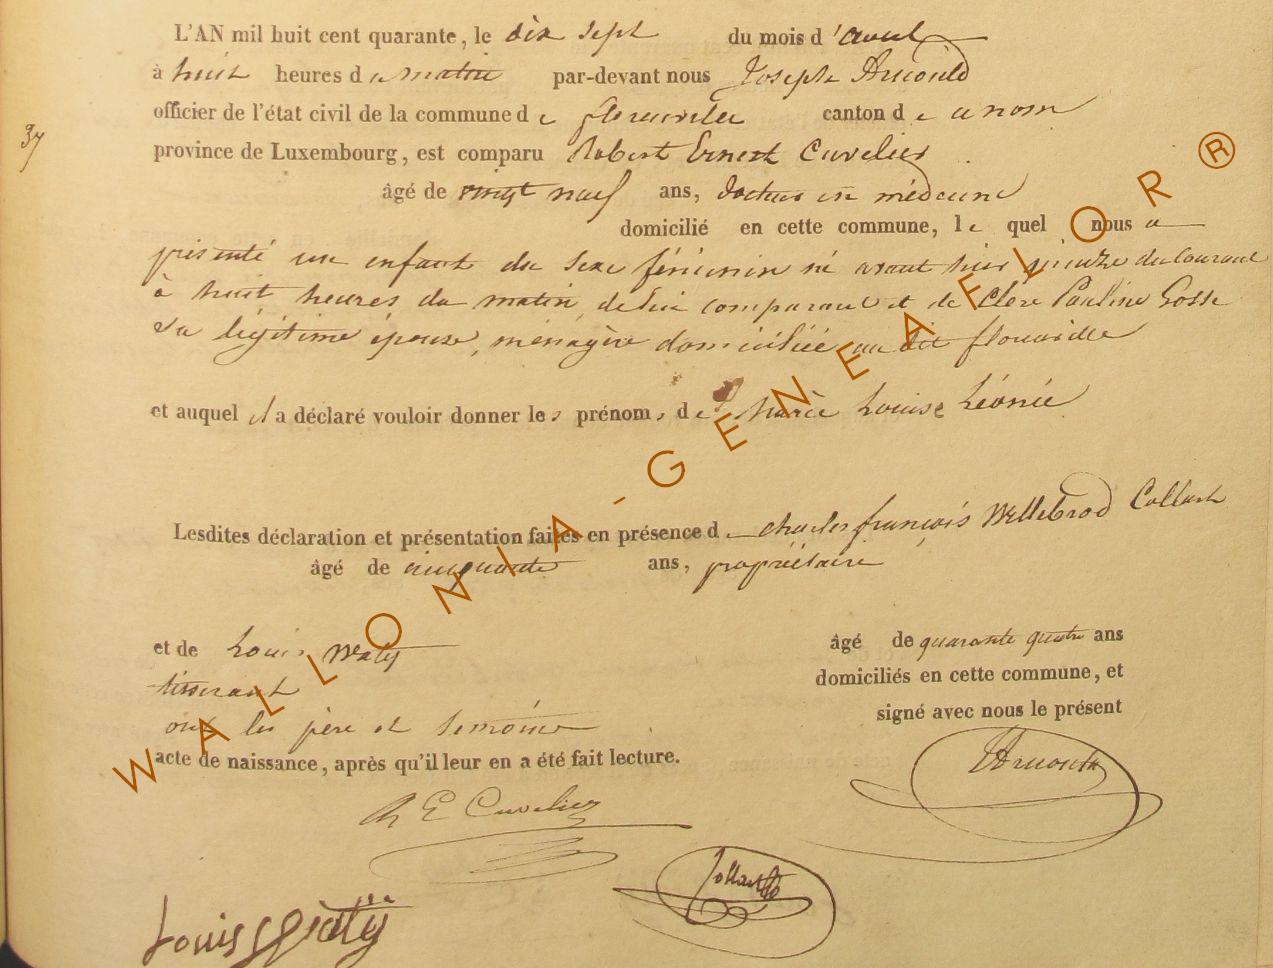 L'AN mil huit cent quarante, le dix sept du mois d'avril
à huit heures du matin par-devant nous Joseph Arnould
officier de l'état civil de la commune de florenville canton de
province de Luxembourg, est comparu Robert Ernest Cuvelier
37
âgé de vingt neuf ans, docteur en médecine
domicilié en cette commune, le quel nous a
présenté un enfant du sexe féminin né avant hier quinze du courant
à huit heures du matin, de lui comparant et de Clère Pauline Gosse
sa légitime épouse, ménagère domiciliée au dit florenville
et auquel il a déclaré vouloir donner les prénoms de Marie Louise Léonie
Lesdites déclaration et présentation faites en présence de charles françois Willebrod Collart
âgé de cinquante ans, propriétaire
et de Louis Waty âgé de quarante quatre ans
tisserant domiciliés en cette commune, et
ont les père et témoins signé avec nous le présent
acte de naissance, après qu'il leur en a été fait lecture.
Arnould
R E Cuvelier
Collart
Louis Waty
WALLONIA-GENEAFLOR®